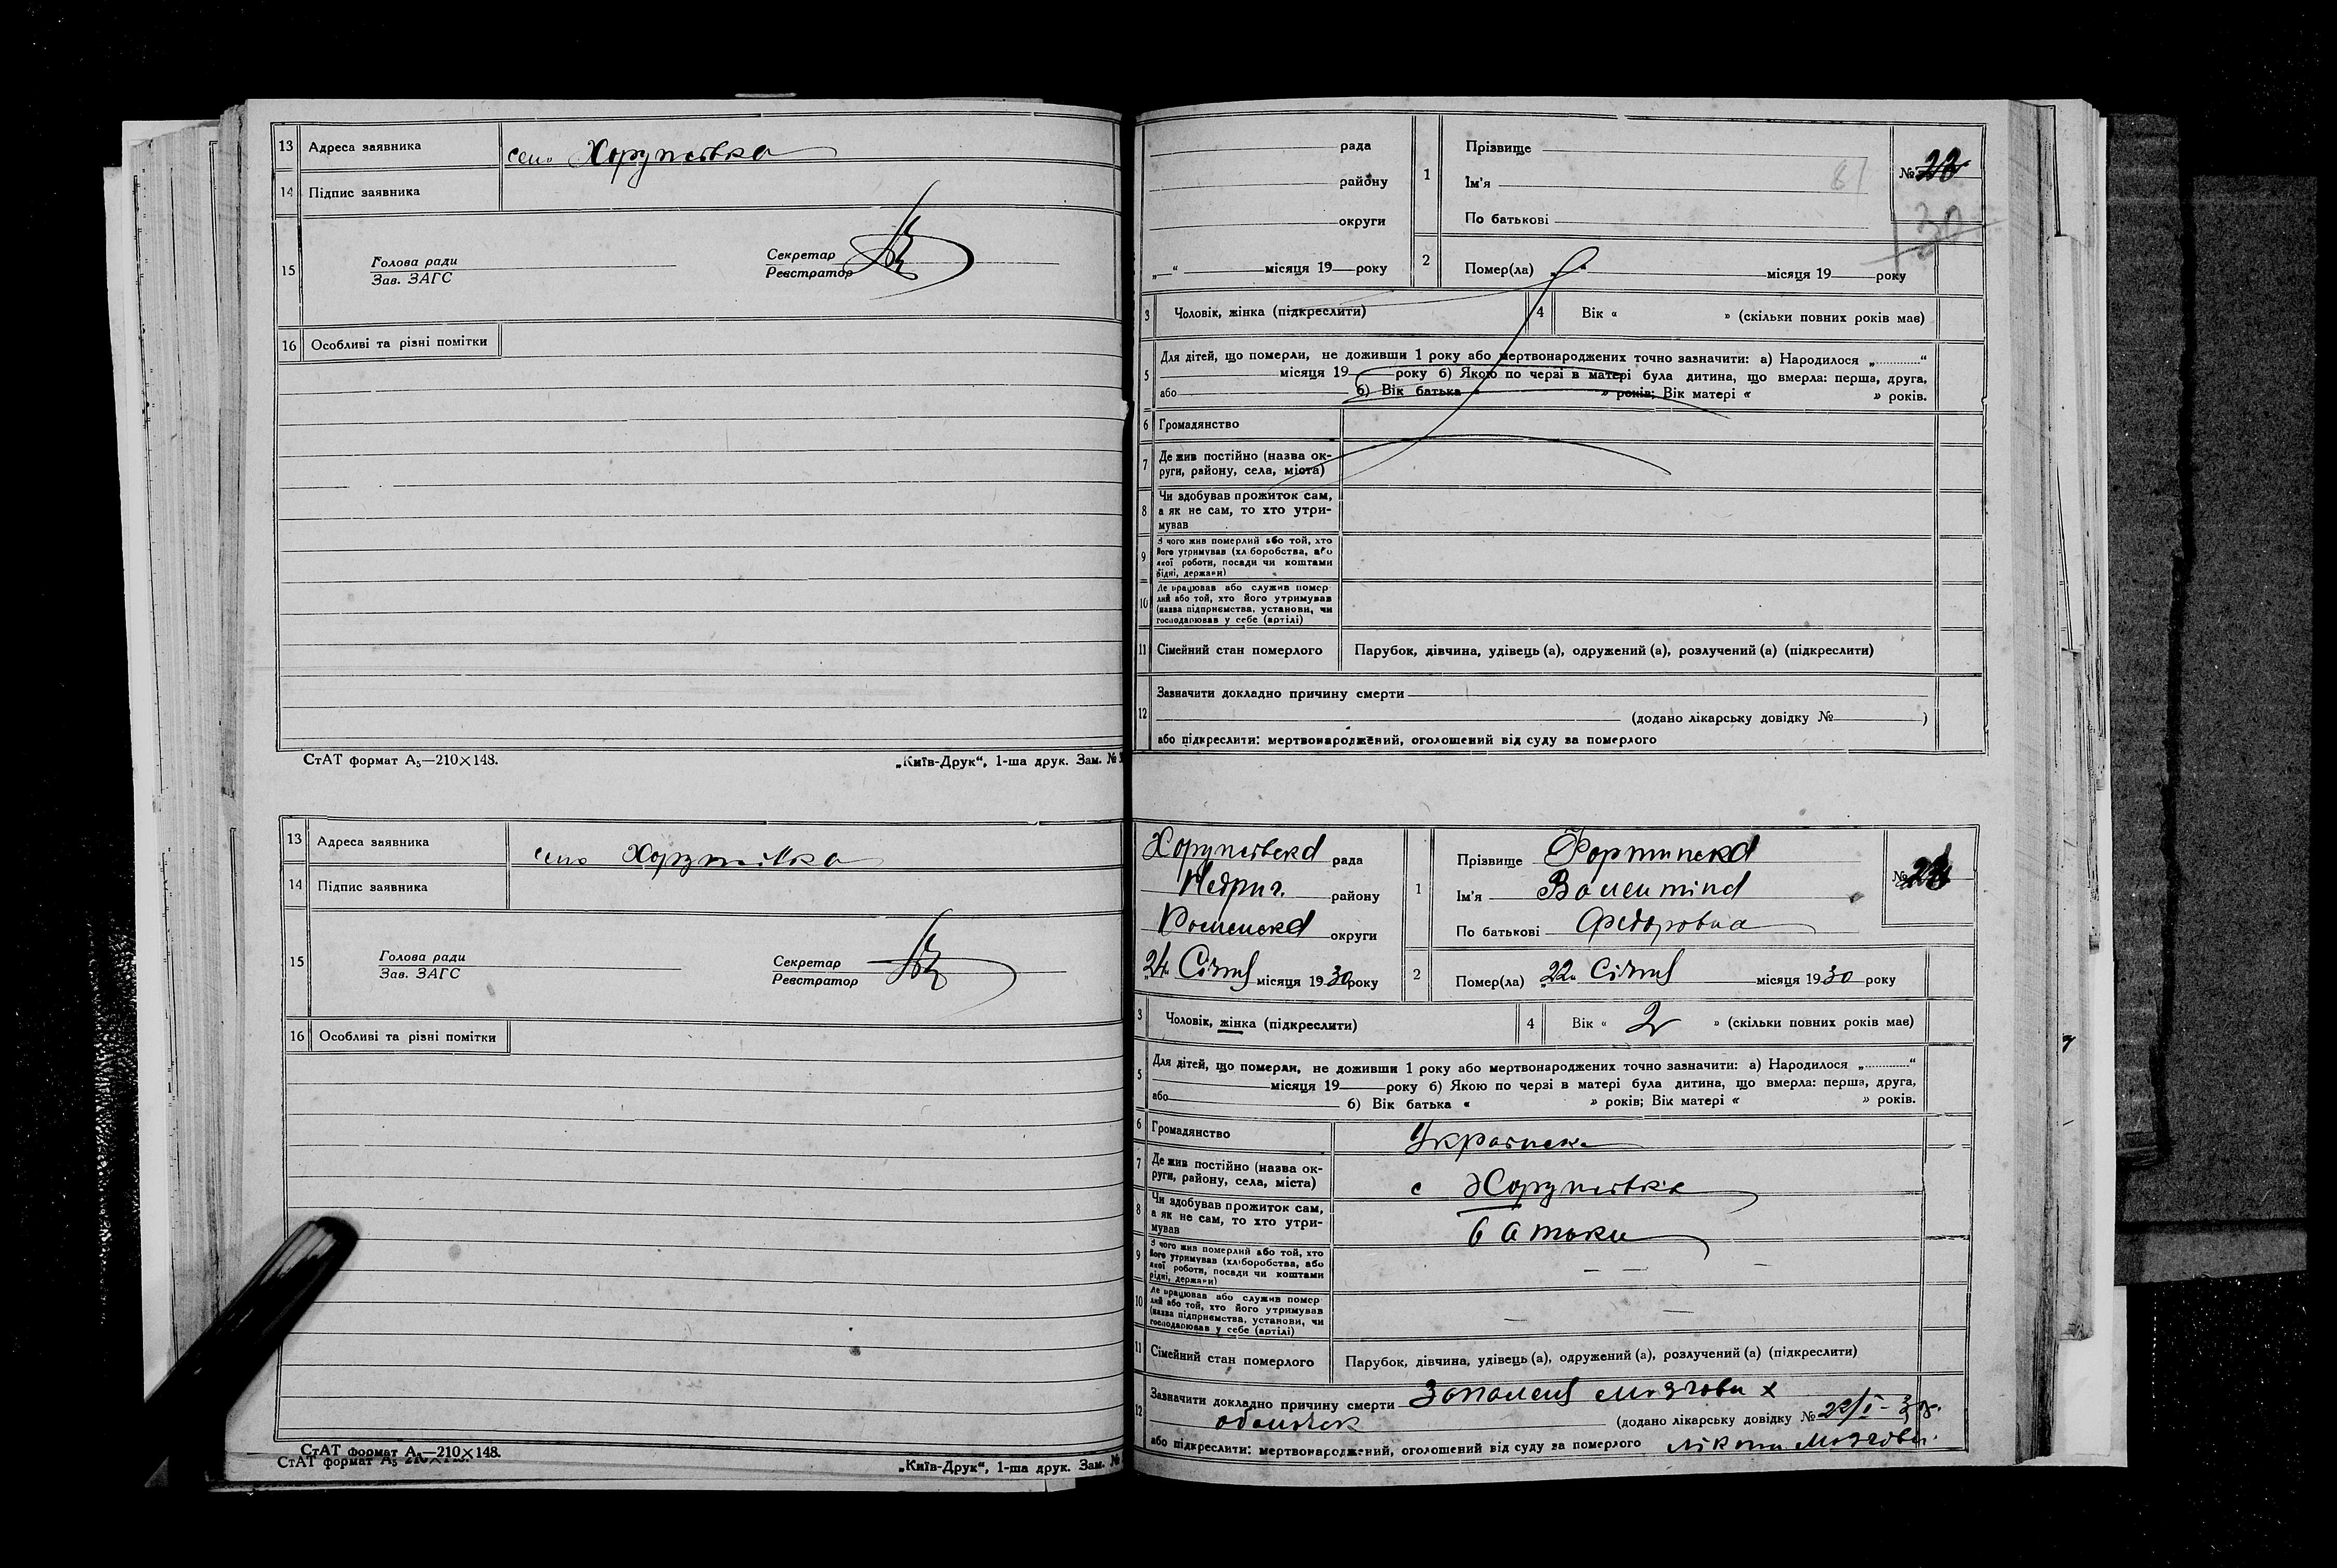 13 Адреса заявника село Хоружівка
14 Підпис заявника
15 Голова ради
Зав. ЗАГС
Секретар
Реєстратор
16 Особливі та різні помітки
СтАТ формат А₅—210×148.
„Київ-Друк“, 1-ша друк. Зам. №
13 Адреса заявника село Хоружівка
14 Підпис заявника
15 Голова ради
Зав. ЗАГС
Секретар
Реєстратор
16 Особливі та різні помітки
СтАТ формат А₅—210×148.
СтАТ формат А₅
„Київ-Друк“, 1-ша друк. Зам. №
рада
району
округи
„ “ місяця 19 року
1 Прізвище
Ім'я 81
По батькові
№
30
2 Помер(ла) місяця 19 року
3 Чоловік, жінка (підкреслити) 4 Вік « » (скільки повних років має)
5 Для дітей, що померли, не доживши 1 року або мертвонароджених точно зазначити: а) Народилося „ “
місяця 19 року б) Якою по черзі в матері була дитина, що вмерла: перша, друга,
або б) Вік батька « » років; Вік матері « » років.
6 Громадянство
7 Де жив постійно (назва ок-
руги, району, села, міста)
8 Чи здобував прожиток сам,
а як не сам, то хто утри-
мував
9 З чого жив померлий або той, хто
його утримував (хліборобства, або
якої роботи, посади чи коштами
рідні, держави)
10 Де працював або служив помер
лий або той, хто його утримував
(назва підприємства, установи, чи
господарював у себе (артілі)
11 Сімейний стан померлого Парубок, дівчина, удівець (а), одружений (а), розлучений (а) (підкреслити)
12 Зазначити докладно причину смерти
(додано лікарську довідку № )
або підкреслити: мертвонароджений, оголошений від суду за померлого
Хоружівська рада
Недриг. району
Роменська округи
„24“ Січня місяця 1930 року
1 Прізвище
Ім'я Валентина
По батькові Федоровна
№
2 Помер(ла) „22“ Січня місяця 1930 року
3 Чоловік, жінка (підкреслити) 4 Вік « 2 » (скільки повних років має)
5 Для дітей, що померли, не доживши 1 року або мертвонароджених точно зазначити: а) Народилося „ “
місяця 19 року б) Якою по черзі в матері була дитина, що вмерла: перша, друга,
або б) Вік батька « » років; Вік матері « » років.
6 Громадянство Українська
7 Де жив постійно (назва ок-
руги, району, села, міста) с Хоружівка
8 Чи здобував прожиток сам,
а як не сам, то хто утри-
мував батьки
9 З чого жив померлий або той, хто
його утримував (хліборобства, або
якої роботи, посади чи коштами
рідні, держави) — — —
10 Де працював або служив помер
лий або той, хто його утримував
(назва підприємства, установи, чи
господарював у себе (артілі) — —
11 Сімейний стан померлого Парубок, дівчина, удівець (а), одружений (а), розлучений (а) (підкреслити)
12 Зазначити докладно причину смерти Запаленя мозгових
оболочек (додано лікарську довідку № 22/I - 30
або підкреслити: мертвонароджений, оголошений від суду за померлого